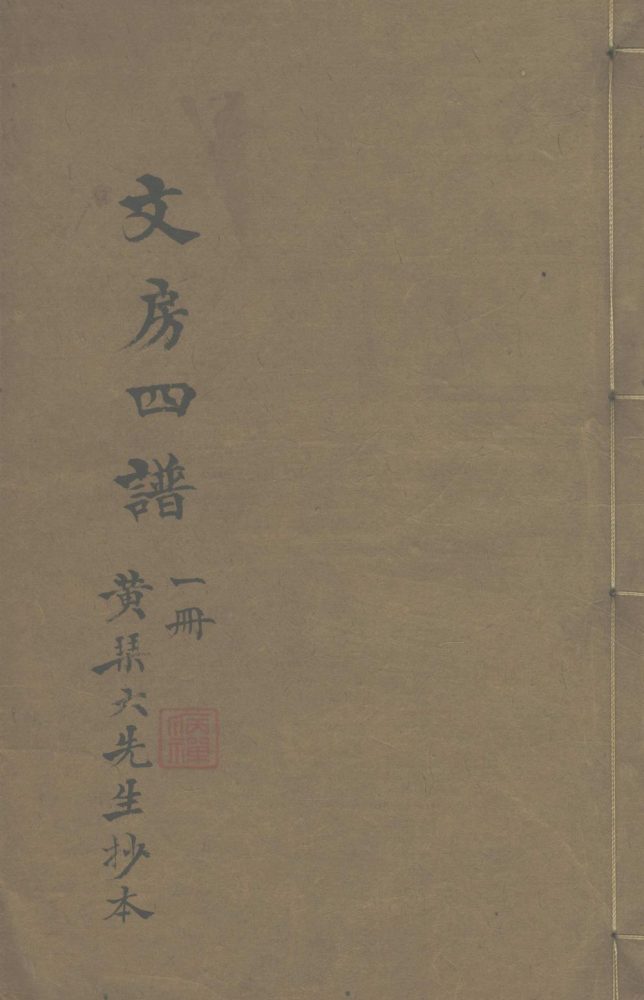 文房四譜
一冊
黄琹六先生抄本